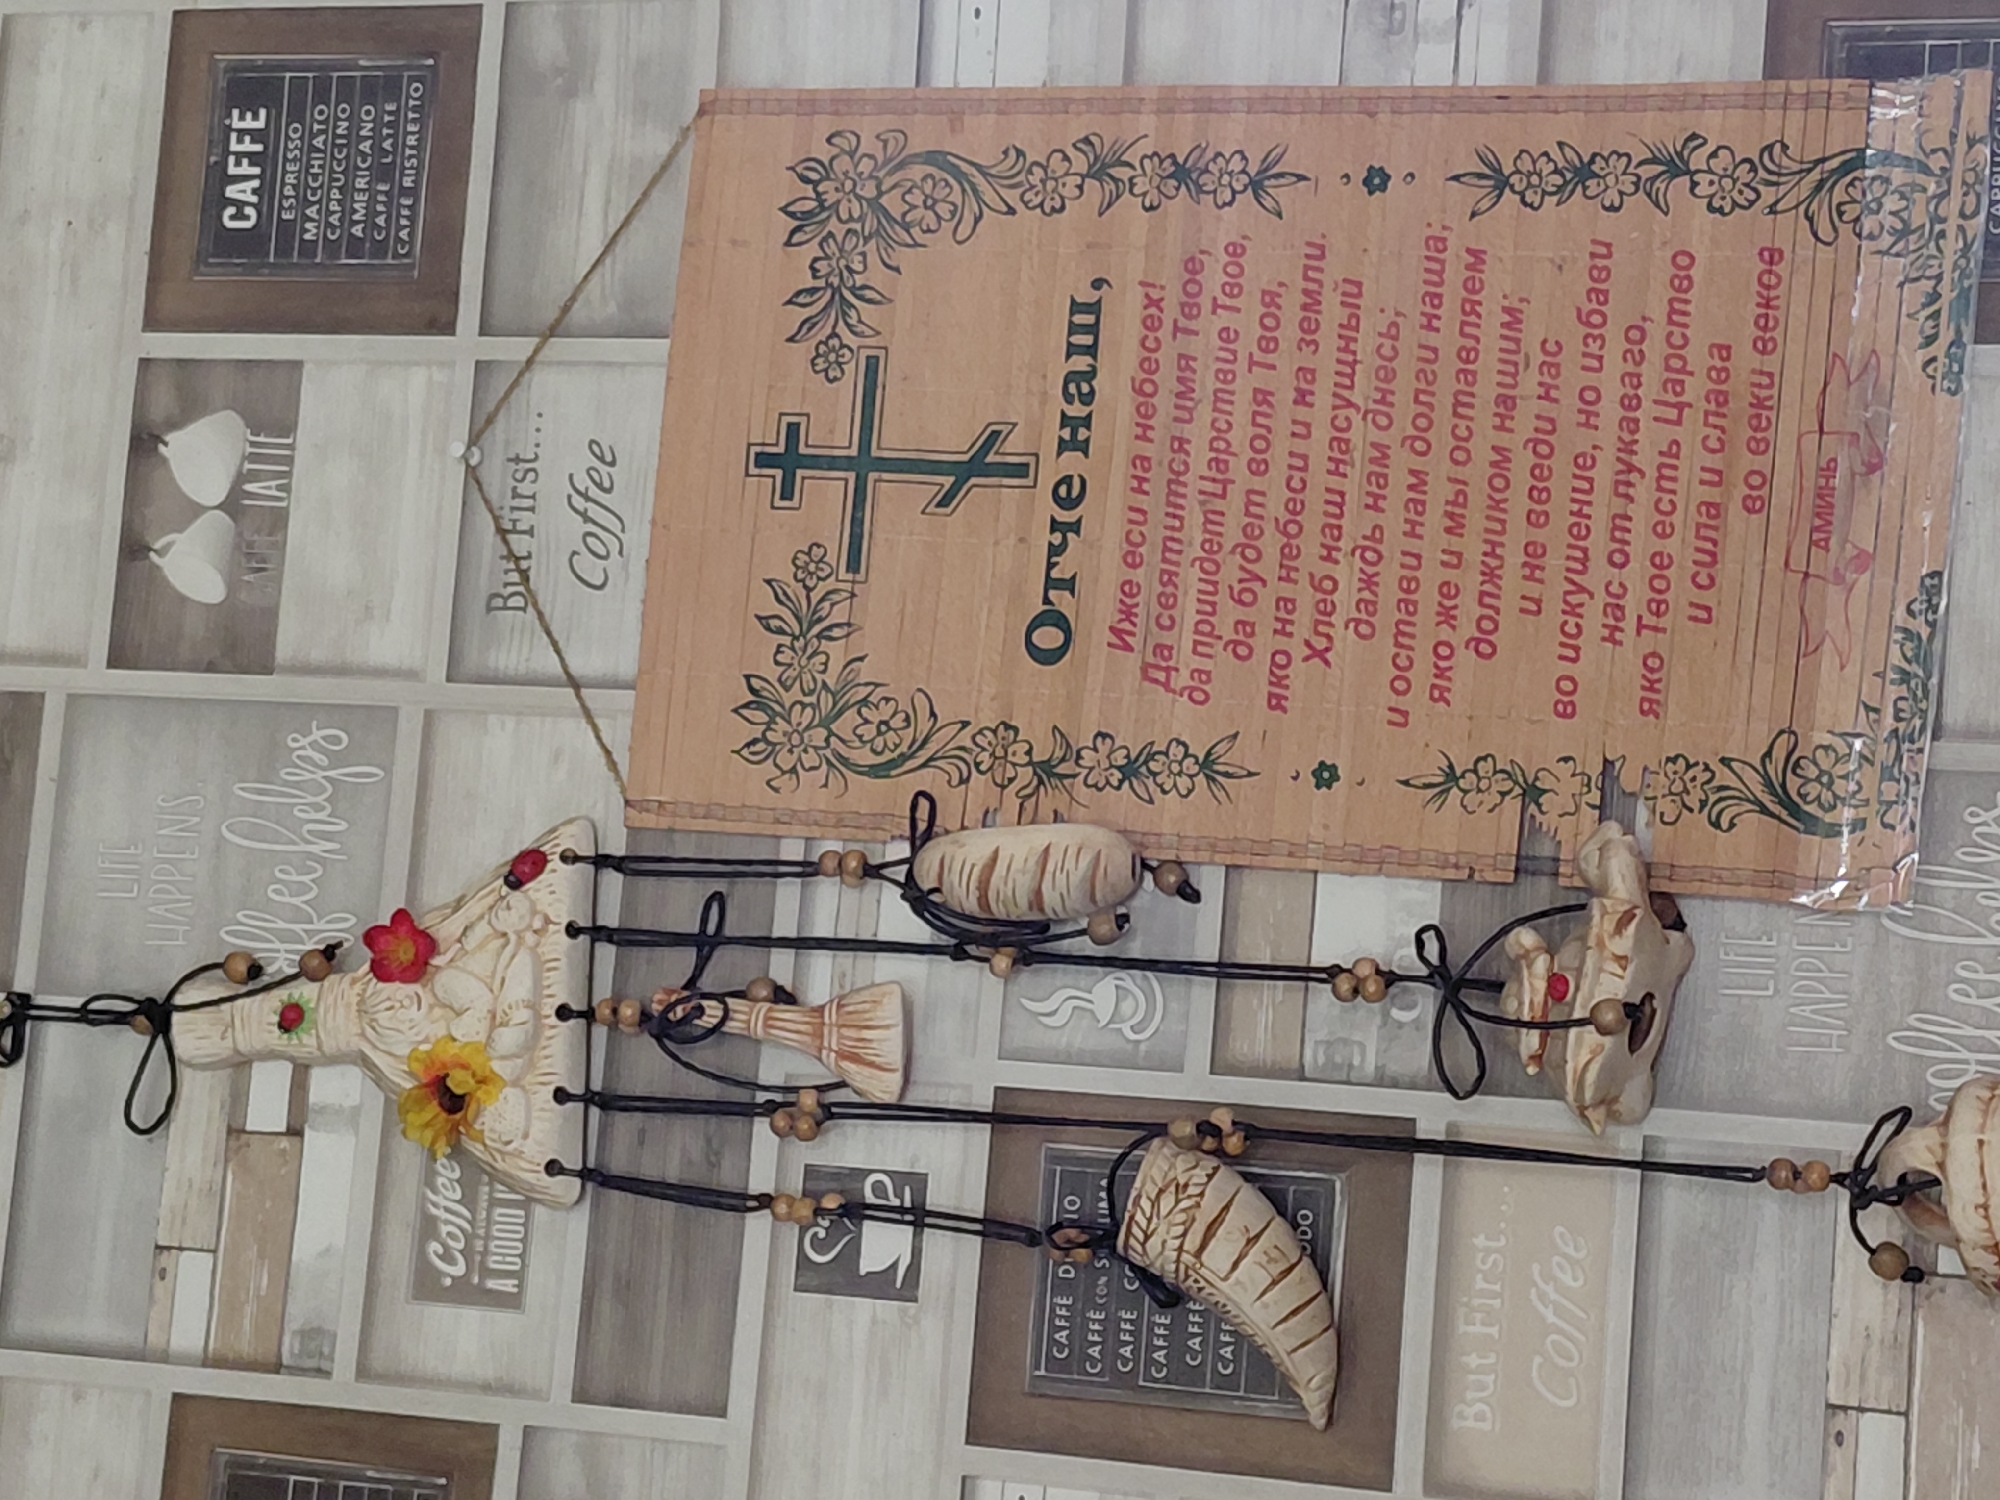 Отче наш,
Иже еси на небесех!
Да святится имя Твое,
да приидет Царствие Твое,
да будет воля Твоя,
яко на небеси и на земли.
Хлеб наш насущный
даждь нам днесь;
и остави нам долги наша;
яко же и мы оставляем
должником нашим;
и не введи нас
во искушение, но избави
нас от лукаваго,
яко Твое есть Царство
и сила и слава
во веки веков
АМИНЬ
CAFFÈ
ESPRESSO
MACCHIATO
CAPPUCCINO
AMERICANO
CAFFÈ LATTE
CAFFÈ RISTRETTO
CAFFE LATTE
But First...
Coffee
LIFE
HAPPENS.
coffee helps
Coffee
A GOOD
CAFFÈ
CAFFÈ CON
CAFFÈ
CAFFÈ
CAFFÈ
But First...
Coffee
LIFE
HAPPEN
coffee helps